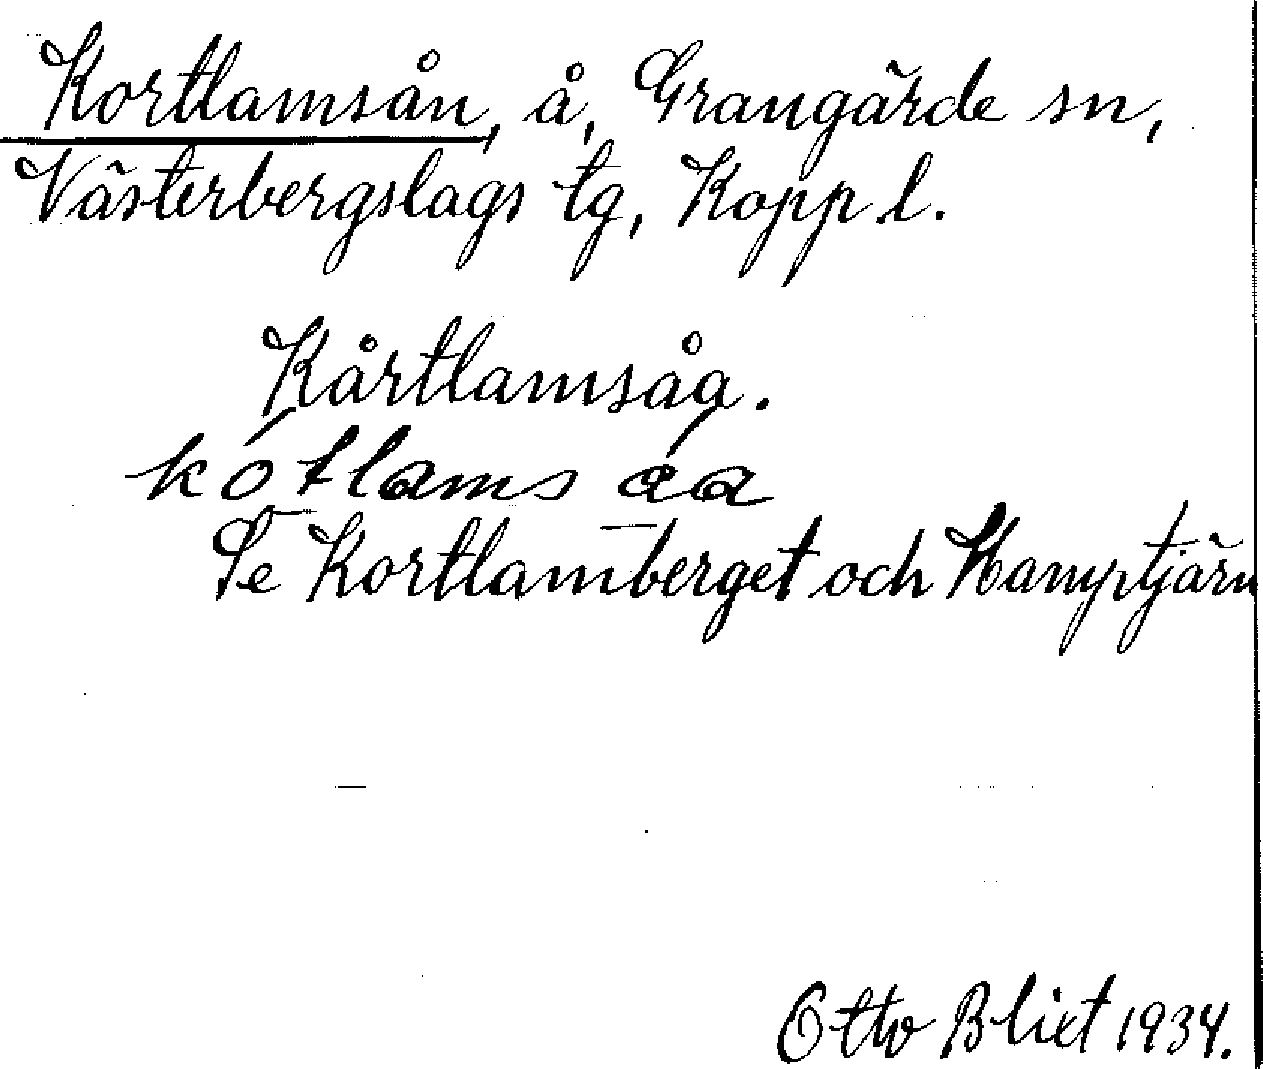 Kortlamsån, å, Grangärde sn,
Västerbergslags tg, Kopp. l.
Kårtlamsåa.
kótlams åa
Se Kortlamberget och Hamptjärn
Otto Blixt 1934.